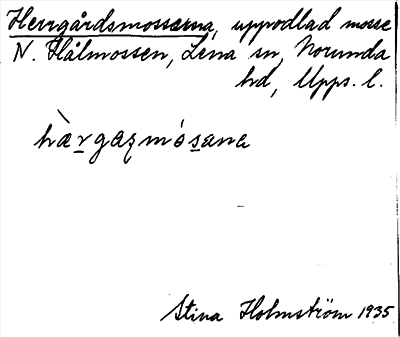 Herrgårdsmossarna, uppodlad mosse
N. Hålmossen, Lena sn, Norunda
hd, Upps. l.
hæ̀rgaʐmósana
Stina Holmström 1935